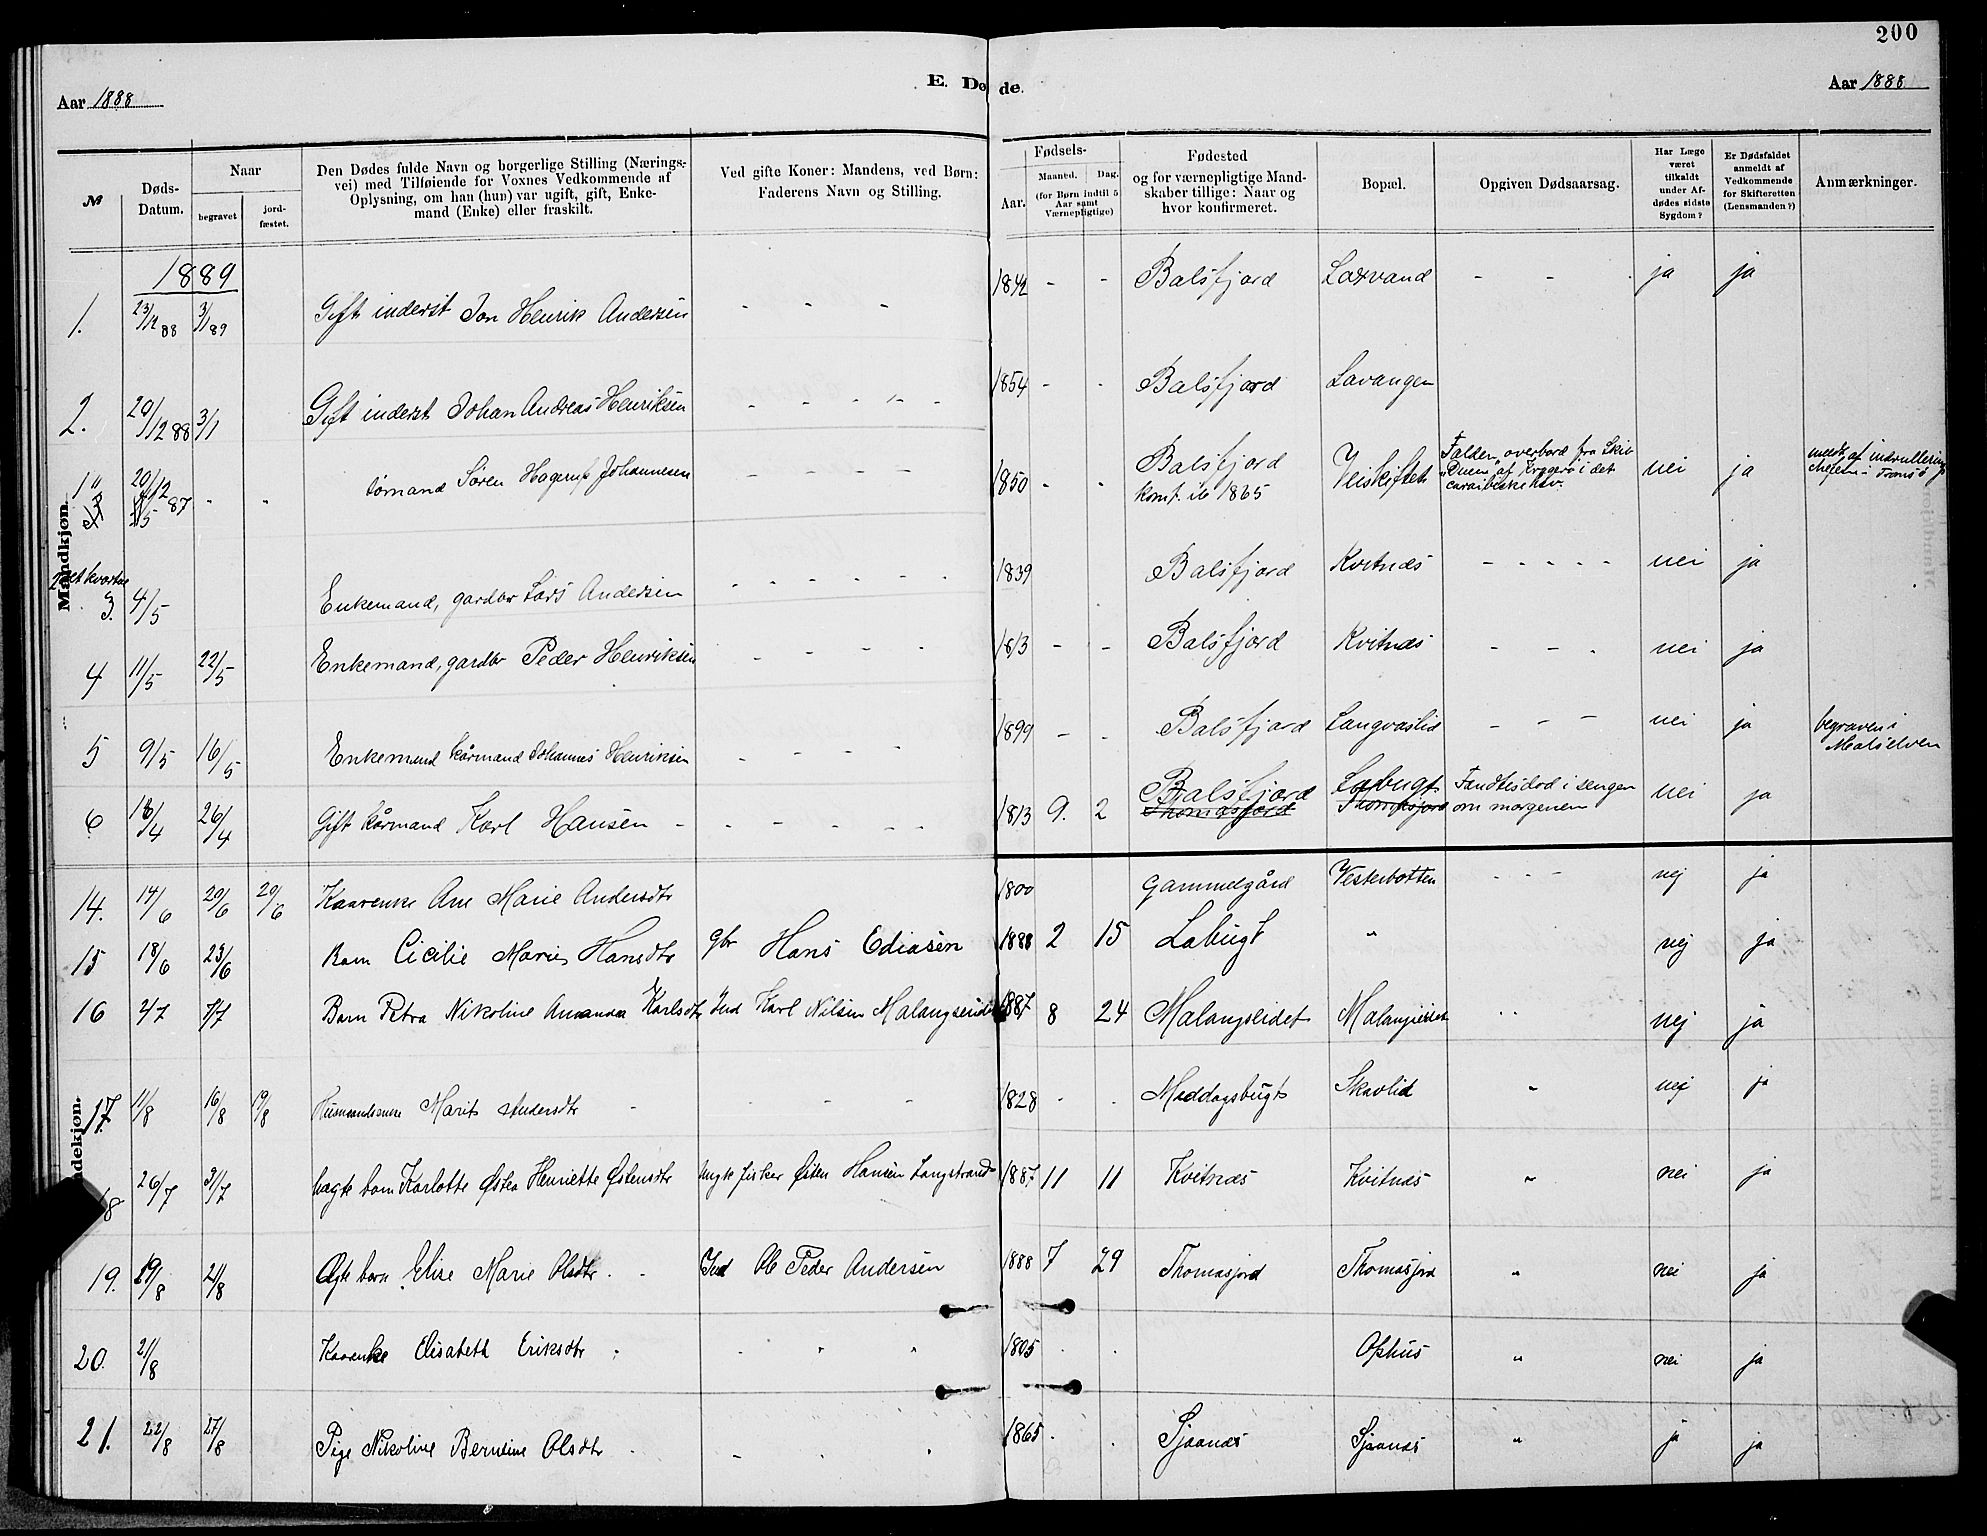 200
Aar 1888
E. Døde.
Aar 1888
№
Døds-Datum.
Naar
begravet
jord-fæstet.
Den Dødes fulde Navn og borgerlige Stilling (Nærings-
vei) med Tilføiende for Voxnes Vedkommende af
Oplysning, om han (hun) var ugift, gift, Enke-
mand (Enke) eller fraskilt.
Ved gifte Koner: Mandens, ved Børn:
Faderens Navn og Stilling.
Fødsels-
Aar.
Maaned. Dag.
(for Børn indtil 5
Aar samt
Værnepligtige)
Fødested
og for værnepligtige Mand-
skaber tillige: Naar og
hvor konfirmeret.
Bopæl.
Opgiven Dødsaarsag.
Har Læge
været
tilkaldt
under Af-
dødes sidste
Sygdom?
Er Dødsfaldet
anmeldt af
Vedkommende
for Skifteretten
(Lensmanden?)
Anmærkninger.
Mandkjøn.
1889
1. 23/12 88 3/1 89 Gift inderst Jon Henrik Andersen - - - 1842 - - Balsfjord Laxvand - - ja ja
2. 20/12 88 3/1 Gift inderst Johan Andreas Henriksen - - - - - 1854 - - Balsfjord Lavangen
1" 20/12 87 - - Sømand Søren Hagerup Johannesen - - - - 1850 - - Balsfjord
konf. ib 1865 Veiskiftet Falden overbord fra Skib
"Duen" af Kragerø i det
caraibiske hav. nei ja meldt af indrullerings
chefen i Tromsø
3. 4/5 Enkemand, gardbr Lars Andersen - - - - - - 1839 Balsfjord Kvitnæs - - - - - nei ja
4 11/5 22/5 Enkemand, gardbr Peder Henriksen - - - - 1813 - - Balsfjord Kvitnæs - - - nei ja
5 9/5 16/5 Enkemand kårmand Johannes Henriksen - - - - 1899 - - Balsfjord Langvaslid - - - nei ja begraven i
Malselven
6 18/4 26/4 Gift kårmand Karl Hansen - - - - - - 1813 9. 2 Balsfjord
Thomasjord Laxbugt
Thomasjord Fandtes død i sengen
om morgenen nei ja
14. 14/6 20/6 20/6 Kaarenke Ane Marie Andersdtr 1800 Gammelgård Vesterbotten - - - nej ja
15 18/6 23/6 Barn Cicilie Marie Hansdtr Gbr Hans Ediasen 1888 2 15 Labugt " nej ja
16 4/7 7/7 Barn Petra Nikoline Amanda Karlsdtr Ind Karl Nilsen Malangseidet 1887 8 24 Malangseidet Malangseidet " nej ja
17. 11/8 16/8 19/8 Husmandsenke Marit Andersdtr - - - - 1828 - - Maddagsbugt Skavlid " nej ja
18 26/7 31/7 Uægte barn Karlotte Østea Henriette Østensdtr Ungk fisker Østen Hansen Langstrand 1887 11 11 Kvitnæs Kvitnæs " nei ja
19. 19/8 21/8 Ægte barn Elise Marie Olsdtr - - Ind Ole Peder Andersen 1888 7 29 Thomasjord Thomasjord " nei ja
20. 21/8 Kaarenke Elisabeth Eriksdtr - - - - 1805 - - Ophus " nei ja
21. 22/8 27/8 Pige Nikoline Berntine Olsdtr - - - - 1865 - - Sjaanes Sjaanes " ja ja